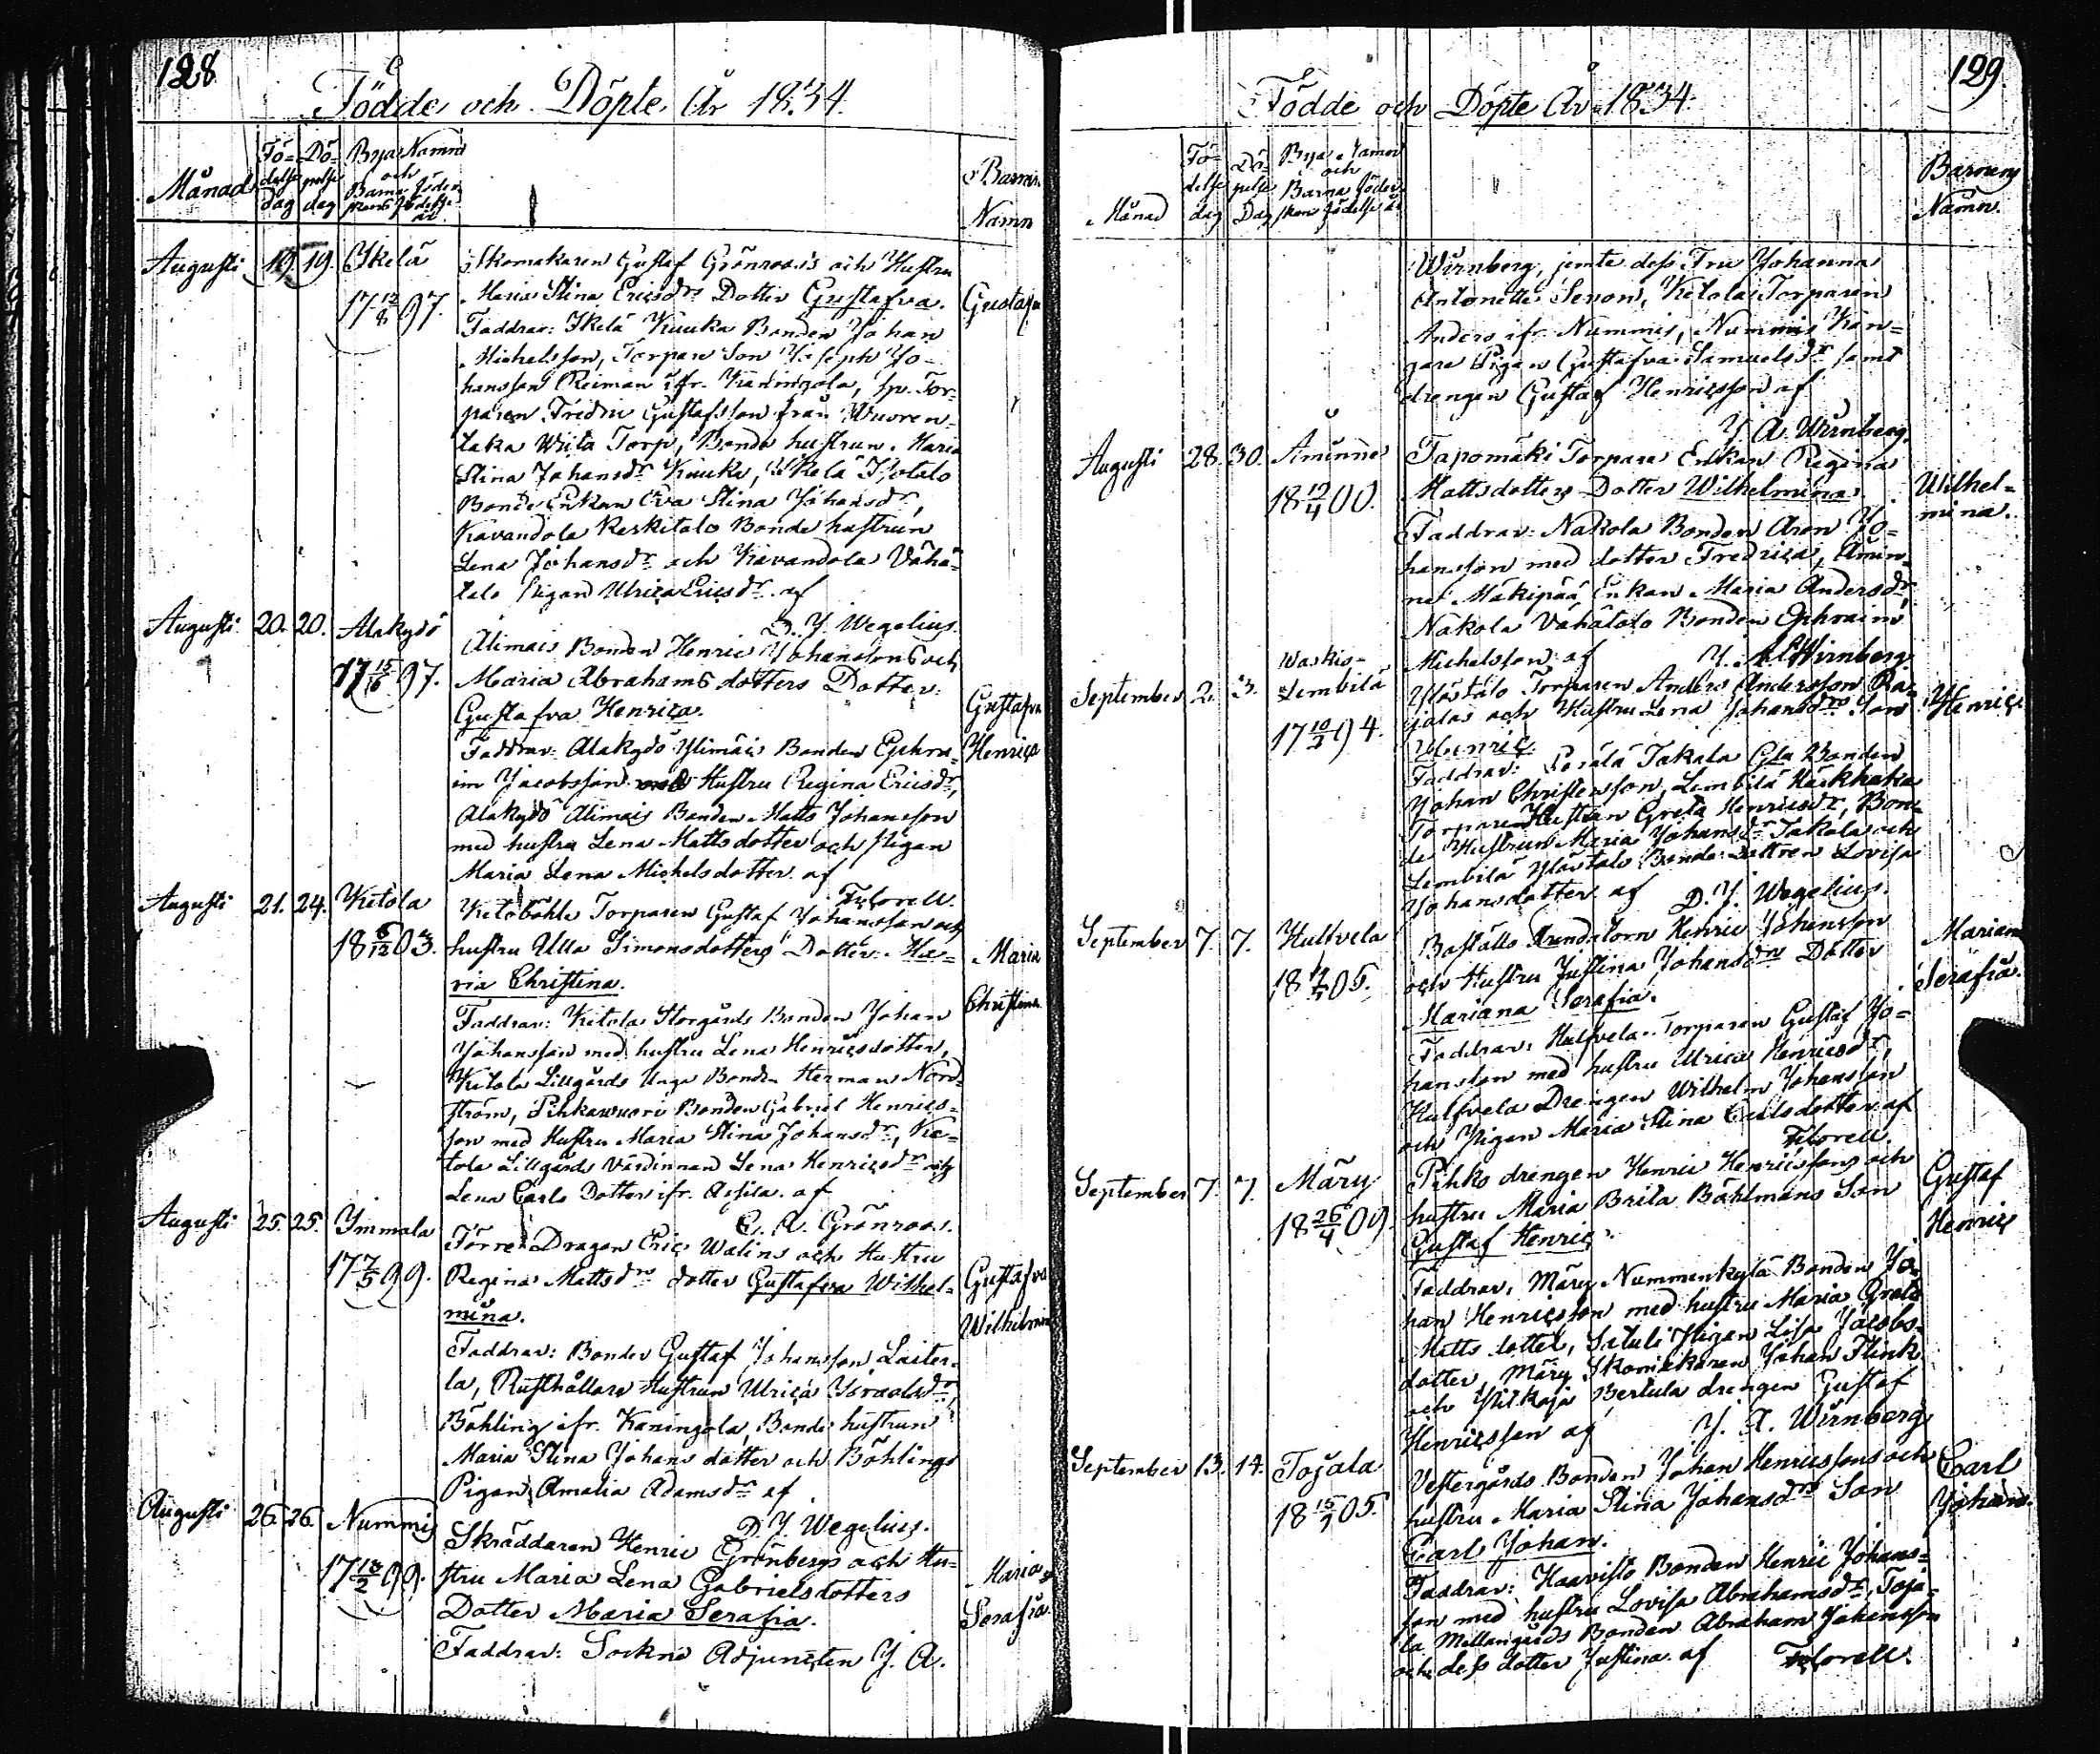 128
Födde och Döpte År 1834.
Månad
Fö-
delse
dag
Dö-
pelse
dag
Bya Namn
och
Barna föder-
skans födelse
år
Barnens
Namn
Augusti 19. 19. Ikelä
17 12/8 97.
Skomakaren Gustaf Grönroos's och Hustru
Maria Stina Ericsdrs Dotter Gustafva.
Gustafva
Faddrar: Ikelä Kuuka Bonden Johan
Michelsson, Torpare Son Joseph Jo-
hansson Reiman ifr. Kaningola, Sp. Tor-
paren Fredric Gustafsson från Wuoren-
taka Wiita Torp, Bonde hustrun Maria
Stina Johansdr Kuuka, Ikelä Isotalo
Bonde Enkan Eva Stina Johansdr,
Kavandola Keskitalo Bonde hustrun
Lena Johansdr och Kavandola Vähä-
talo Pigan Ulrica Ericsdr af
D. J. Wegelius.
Augusti 20. 20. Alakydö
17 15/6 97.
Alimais Bonden Henric Johanssons och
Maria Abrahams dotters Dotter:
Gustafva Henrica.
Gustafva
Henrica
Faddrar: Alakydö Ylimäis Bonden Ephra-
im Jacobsson med Hustru Regina Ericsdr,
Alakydö Alimais Bonden Matts Johansson
med hustru Lena Mattsdotter och Pigan
Maria Lena Michelsdotter af
Florell.
Augusti 21. 24. Ketola
18 6/12 03.
Ketoböhle Torparen Gustaf Johansson och
hustru Ulla Simonsdotters Dotter Ma-
ria Christina.
Maria
Christina
Faddrar: Ketola Storgårds Bonden Johan
Johansson med hustru Lena Henricsdotter,
Ketola Lillgårds Unga Bonden Herman Nord-
ström, Pihkawuori Bonden Gabriel Henrics-
son med Hustru Maria Stina Johansdr, Ke-
tola Lillgårds Värdinnan Lena Henricsdr och
Lena Carls Dotter ifr. af
C. A. Grönroos.
Augusti 25. 25. Immala
17 7/5 99.
Förre Dragon Eric Walins och Hustru
Regina Mattsdrs dotter Gustafva Wilhel-
mina.
Gustafva
Wilhelmina
Faddrar: Bonden Gustaf Johansson Laiter-
la, Rusthållare Hustrun Ulrica Israelsdr,
Böhling ifr. Kaningola, Bonde hustrun
Maria Stina Johans dotter och Böhlings
Pigan Amalia Adamsdr af
D. J. Wegelius.
Augusti 26. 26. Nummis
17 18/2 99.
Skräddaren Henric Grönbergs och Hu-
stru Maria Lena Gabrielsdotters
Dotter Maria Serafia.
Maria
Serafia
Faddrar: Sockne Adjuncten J. A.
129
Födde och Döpte År 1834.
Månad
Fö-
delse
dag
Dö-
pelse
Dag
Bya Namn
och
Barna föder-
skans födelse år
Barnens
Namn.
Wirnberg, jemte dess Fru Johanna
Antonette Lenon, Ketola Torparen
Anders ifr. Nummis, Nummis Kan-
gare Pigan Gustafva Samuelsdr samt
drengen Gustaf Henricsson af
J. A. Wirnberg.
Augusti 28. 30. Åminne
18 12/4 00.
Tapomäki Torpare Enkan Regina
Mattsdotters Dotter Wilhelmina
Wilhel-
mina.
Faddrar: Nakola Bonden Aron Jo-
hansson med dotter Fredrica, Åmin-
ne Mäkipää Enkan Maria Andersdr,
Nakola Vähätalo Bonden Ephraim
Michelsson af J. A. Wirnberg.
September 2. 3. Waskio-
Lembilä
17 10/3 94.
Ylöstalo Torparen Anders Andersson Ra-
jalas och Hustru Lena Johansdrs Son
Henric.
Henric
Faddrar: Peräla Takala Gla Bonden
Johan Christersson, Lembilä
Torpare Hustrun Greta Henricsdr, Bon-
de Hustrun Maria Johansdr Takala och
Lembilä Ylöstalo Bonde Dottren Lovisa
Johansdotter af D. J. Wegelius.
September 7. 7. Hulfvela
05.
Boställs Arendatorn Henric Johansson
och Hustru Justina Johansdrs Dotter
Mariana Serafia.
Mariana
Serafia.
Faddrar: Hulfvela Torparen Gustaf Jo-
hansson med hustru Ulrica Henricsdr,
Hulfvela Drengen Wilhelm Johansson
och Pigan Maria Stina Carlsdotter af
Florell.
September 7. 7. Märy
18 26/4 09.
Pihko drengen Henric Henricssons och
hustru Maria Brita Böhlmans Son
Gustaf Henric.
Gustaf
Henric
Faddrar: Märy Nummenkylä Bonden Jo-
han Henricsson med hustru Maria Greta
Matts dotter, Pigan Lisa Jacobs-
dotter, Märy Skomakaren Johan Flink
och Bertula drengen Gustaf
Henricsson af J. A. Wirnberg.
September 13. 14. Tojala
05.
Vestergårds Bonden Johan Henricssons och
hustru Maria Stina Johansdrs Son
Carl Johan.
Carl
Johan.
Faddrar: Haavisto Bonden Henric Johans-
son med hustru Lovisa Abrahamsdr, Toja-
la Mellangårds Bonden Abraham Johansson
och dess dotter Justina af Florell.